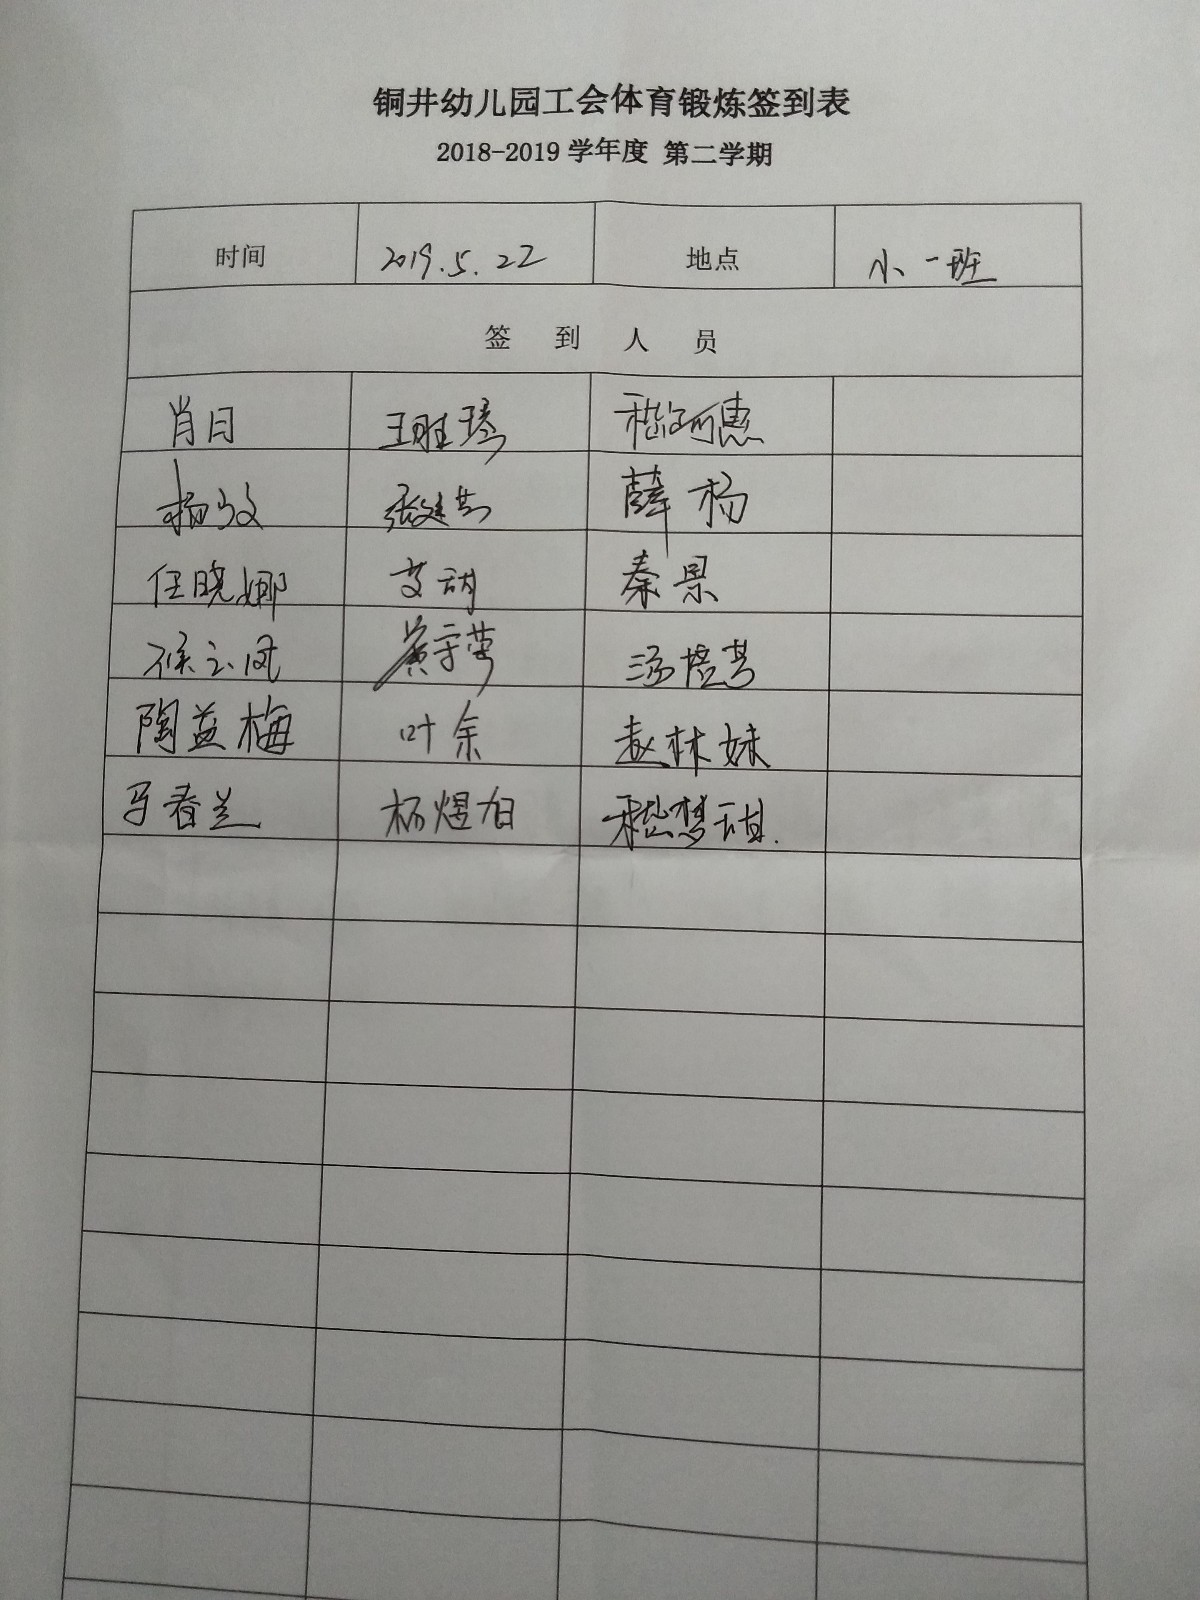 铜井幼儿园工会体育锻炼签到表
2018-2019 学年度 第二学期
时间 2019.5.22 地点 小一班
签 到 人 员
肖日 王胜琴 嵇阿惠
杨文 张建芳 薛杨
任晓娜 艾甜 秦景
侯云凤 黄守萍 汤培芳
陶益梅 叶余 赵林妹
马春兰 杨煜旭 嵇梦琪.